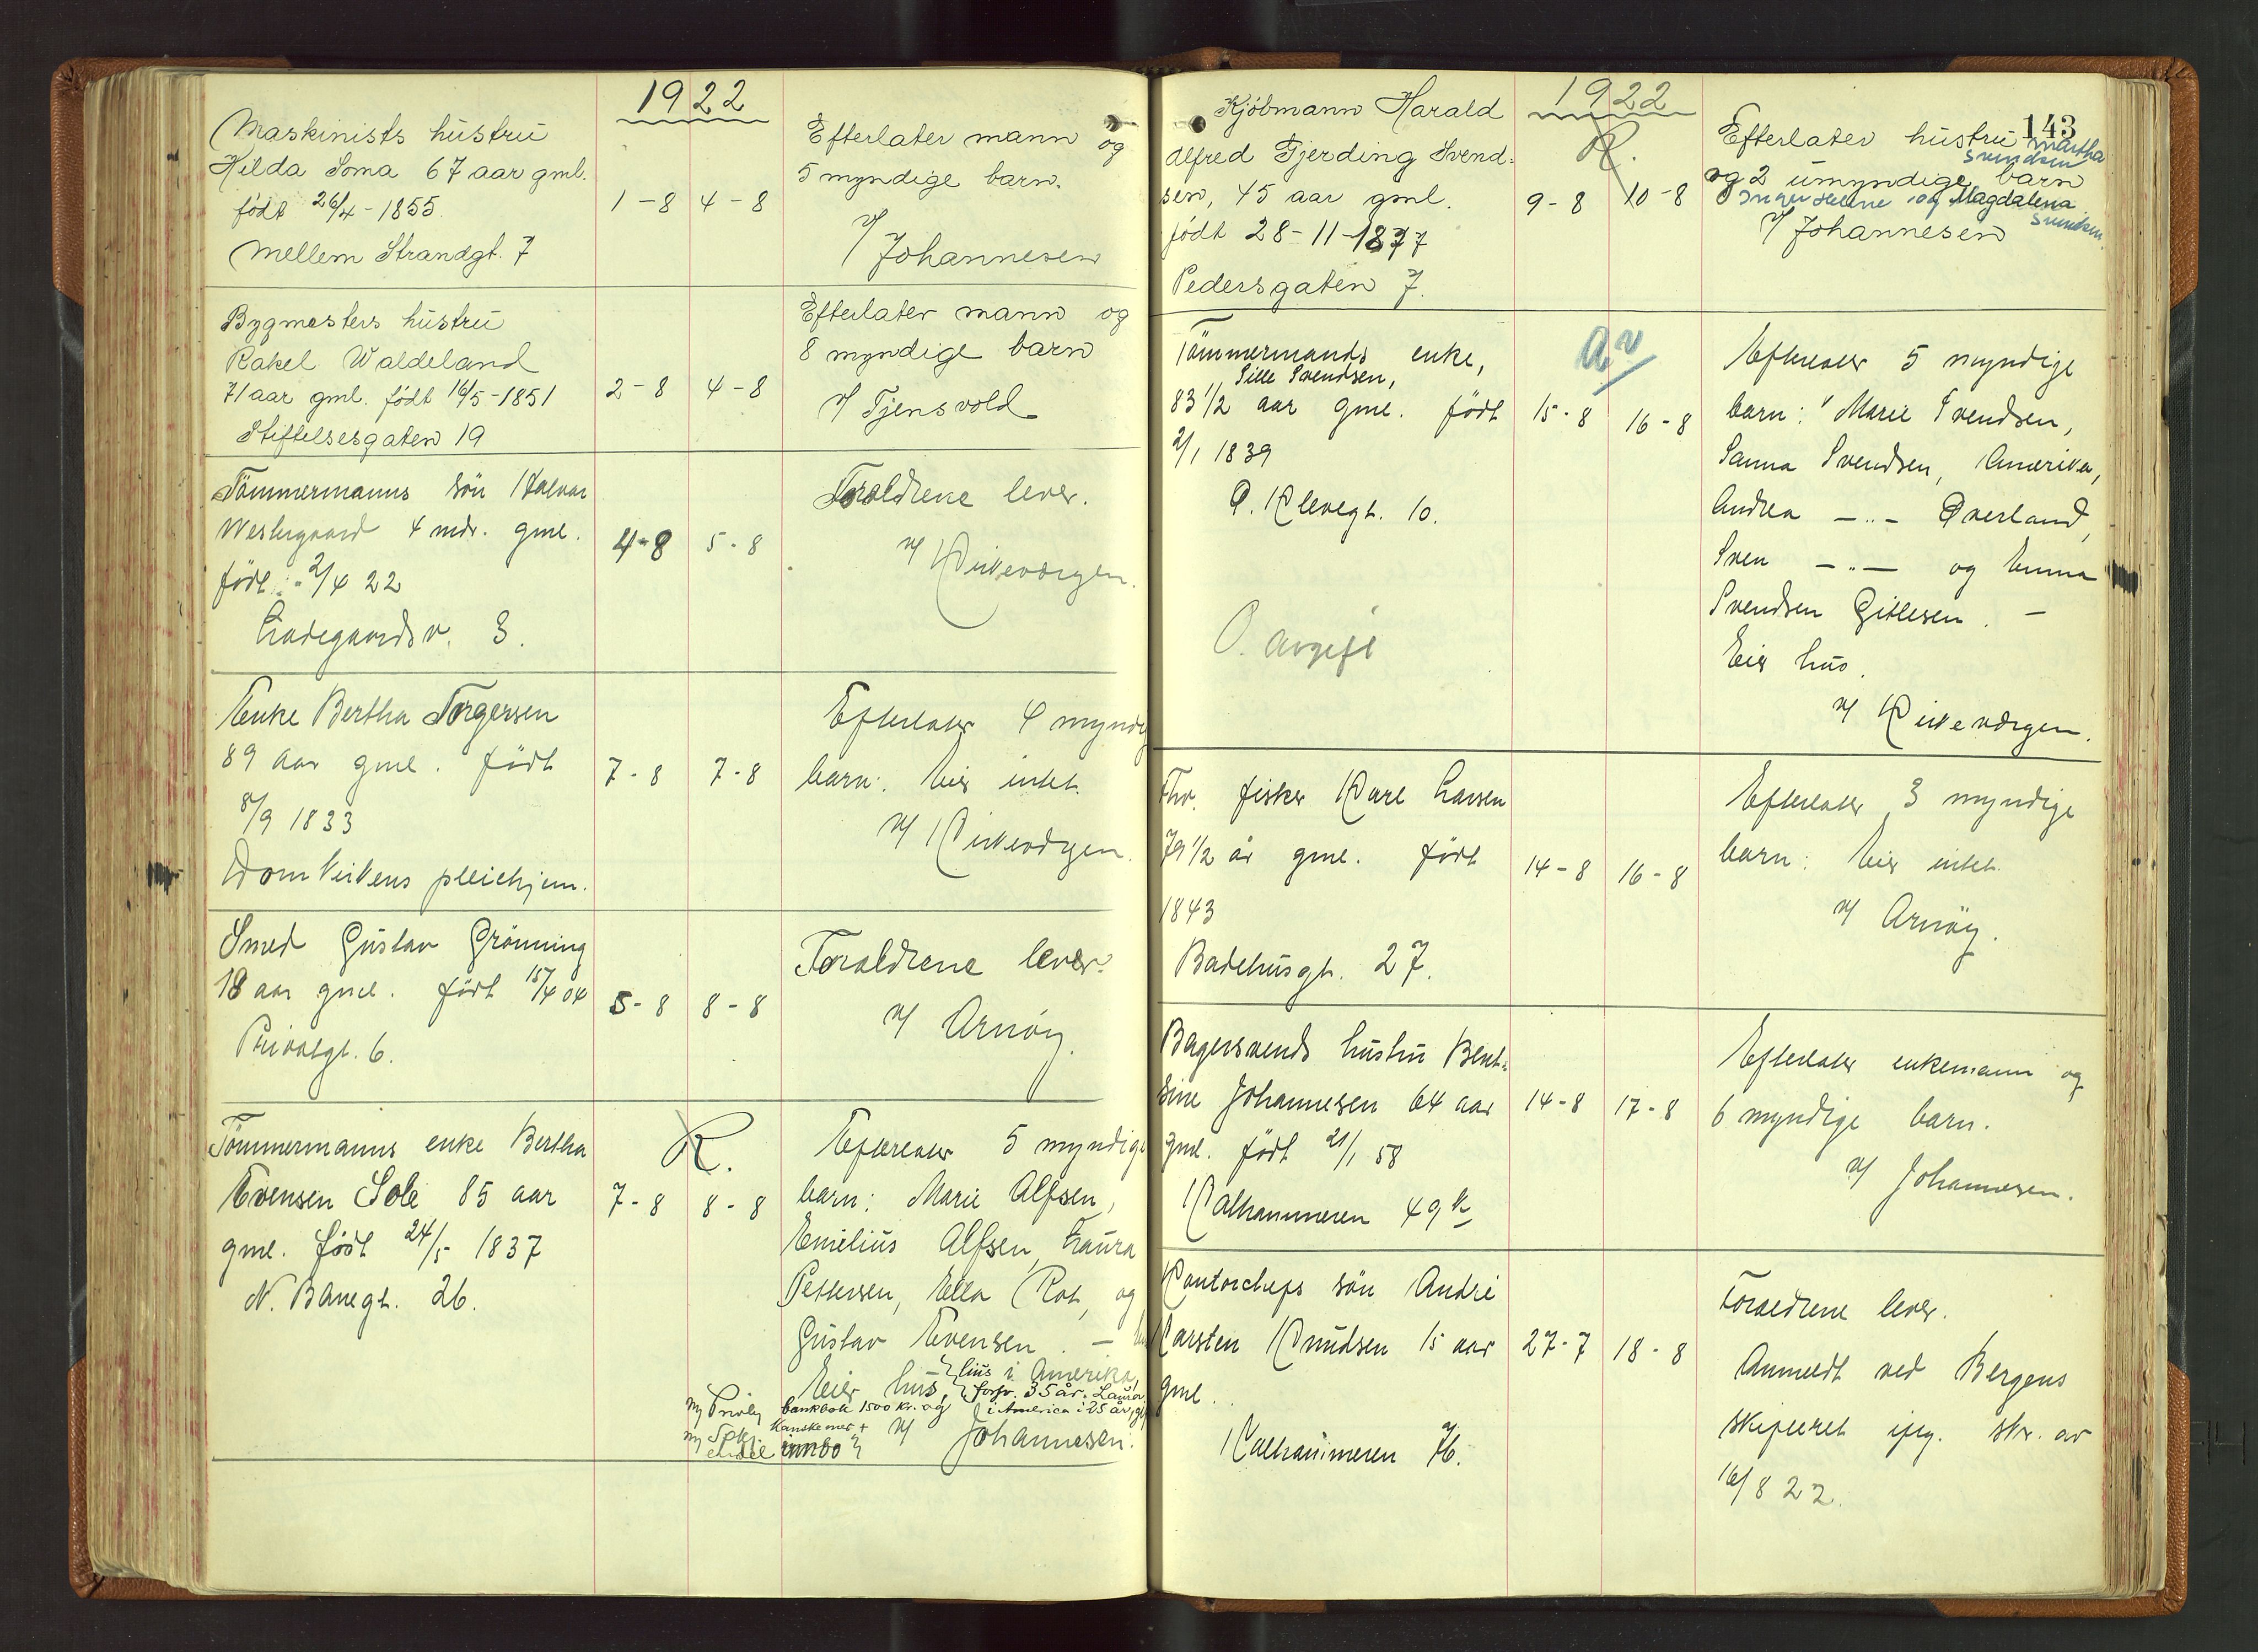 1922
Maskinists hustru
Hilda Soma 67 aar gml.
født 26/4-1855
Mellem Strandgt. 7
1-8 4-8
Efterlater mann og
5 myndige barn.
v/ Johannesen
Bygmesters hustru
Rakel Waldeland
71 aar gml. født 16/5-1851
Stiftelsesgaten 19
2-8 4-8
Efterlater mann og
8 myndige barn
v/ Tjensvold
Tömmermanns sön Halvar
Westergaard 4 mdr. gml.
født: 2/4 22
Ladegaardsv. 3.
4-8 5-8
Foraldrene lever.
v/ Kirkevergen.
Enke Bertha Torgersen
89 aar gml. født
8/9 1833
Domkirkens pleiehjem.
7-8 7-8
Efterlater 4 myndig
barn. Eier intet.
v/ Kirkevergen.
Smed Gustav Grönning
18 aar gml. født 15/4 04
Privatgt. 6.
5-8 8-8
Foraldrene lever.
v/ Arnöy.
Tömmermanns enke Bertha
Evensen Sole 85 aar
gml. født 24/5- 1837
N. Banegt. 26.
R.
7-8 8-8
Efterlater 5 myndige
barn: Marie Alfsen,
Emilius Alfsen, Laura
Pettersen, Ella Rot, og
Gustav Evensen. -
Eier hus, hus i Amerika,
forsv. 35 år. Laura
bankbok 1500 kr. og i America i 25 år,
kanske mer +
innbo v/ Johannesen.
143
1922
Kjöbmann Harald
Alfred Gjerding Svend-
sen, 45 aar gml.
født 28-11-1877
Pedersgaten 7.
R.
9-8 10-8
Efterlater hustru Martha
Svendsen
og 2 umyndige barn
Inger Helene og Magdalena
Svendsen.
v/ Johannesen
Tömmermands enke,
Sille Svendsen,
83 1/2 aar gml. født
2/1 1839
Ö. Klevegt. 10.
O. avgift
av
15-8 16-8
Efterlater 5 myndige
barn: Marie Svendsen,
Sanna Svendsen, Amerika,
Andrea -"- Överland,
Sven -"- og Emma
Svendsen Gitlesen. -
Eier hus.
v/ Kirkevergen.
Fhv. fisker Karl Larsen
79 1/2 år gml. født
1843
Badehusgt. 27.
14-8 16-8
Efterlater 3 myndige
barn: Eier intet.
v/ Arnöy.
Bagersvends hustru Bent-
sine Johannesen 64 aar
gml. født 21/1 58
Kalhammeren 49 b
14-8 17-8
Efterlater enkemann og
6 myndige barn.
v/ Johannesen.
Kontorchefs sön André
Carsten Knudsen 15 aar
gml.
Kalhammeren 76.
27-7 18-8
Foraldrene lever.
Anmeldt ved Bergens
skifteret iflg. skr. av
16/8 22.